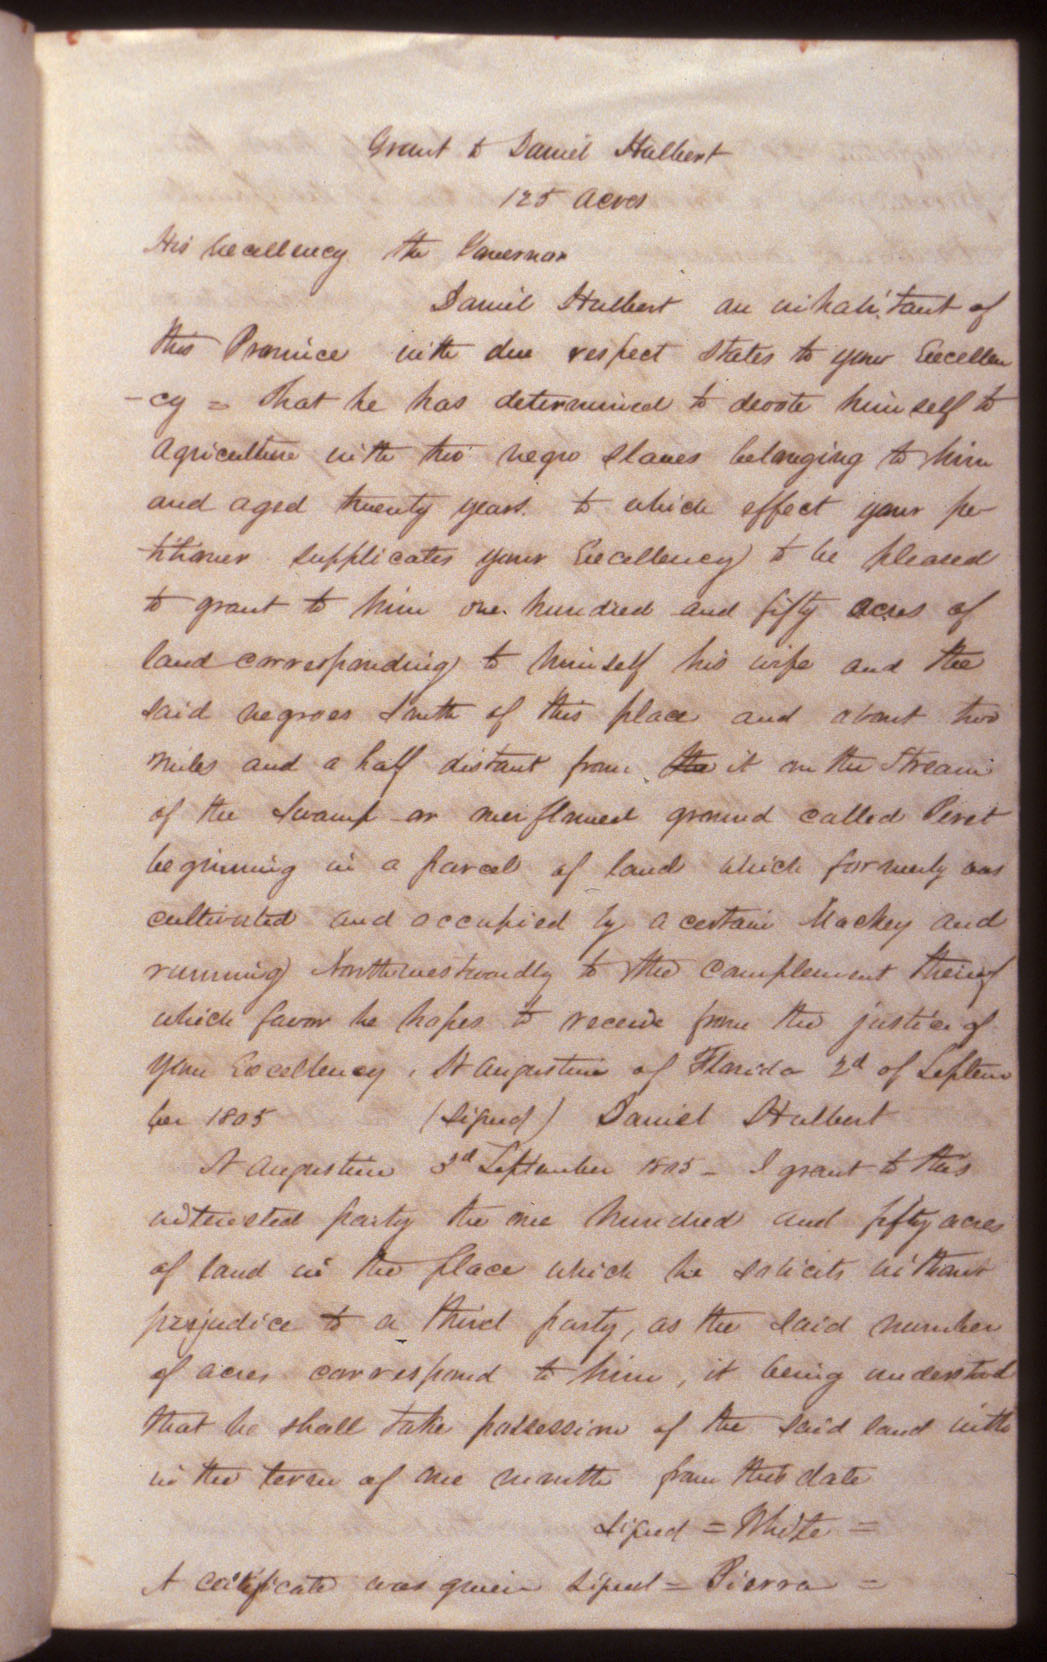 Grant to Daniel Hulbert
125 Acres
His Excellency the Governor
Daniel Hulbert an inhabitant of
this Province with due respect states to your Excellen
-cy = That he has determined to devote himself to
agriculture with two negro slaves belonging to him
and aged twenty years. to which effect your pe-
titioner supplicates your Excellency to be pleased
to grant to him one hundred and fifty acres of
land corresponding to himself his wife and the
said negroes South of this place and about two
miles and a half distant from the it on the Stream
of the Swamp or overflowed ground called Peret
beginning in a parcel of land which formerly was
cultivated and occupied by a certain Mackey and
running Northwestwardly to the complement thereof
which favor he hopes to receive from the justice of
your Excellency, St Augustine of Florida 2d of Septem
ber 1805 (signed) Daniel Hulbert
St Augustine 3d September 1805 - I grant to this
interested party the one hundred and fifty acres
of land in the place which he solicits without
prejudice to a third party, as the said number
of acres correspond to him, it being understood
that he shall take possession of the said land with
in the term of one month from this date
signed = White =
A certificate was given signed = Pierra =